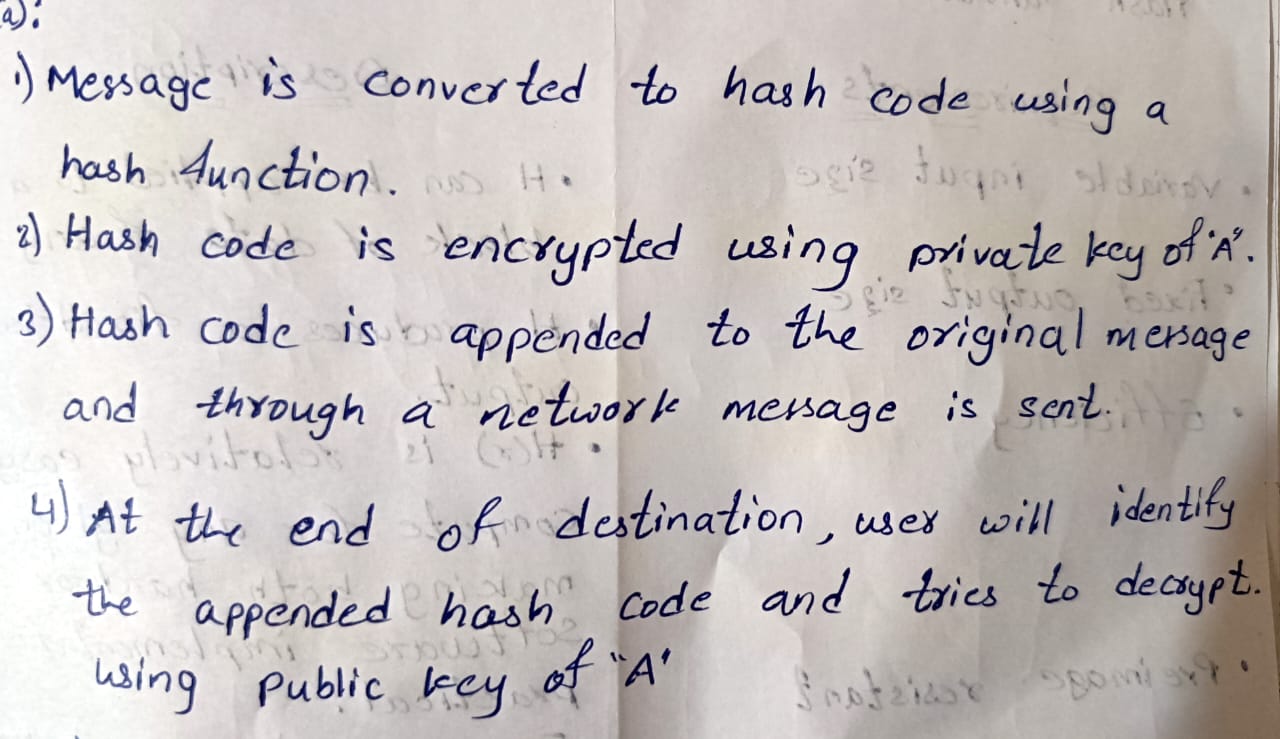 a):
1) Message is converted to hash code using a
hash function.
2) Hash code is encrypted using private key of "A".
3) Hash code is appended to the original message
and through a network message is sent.
4) At the end of destination, user will identify
the appended hash code and tries to decrypt.
using public key of "A"